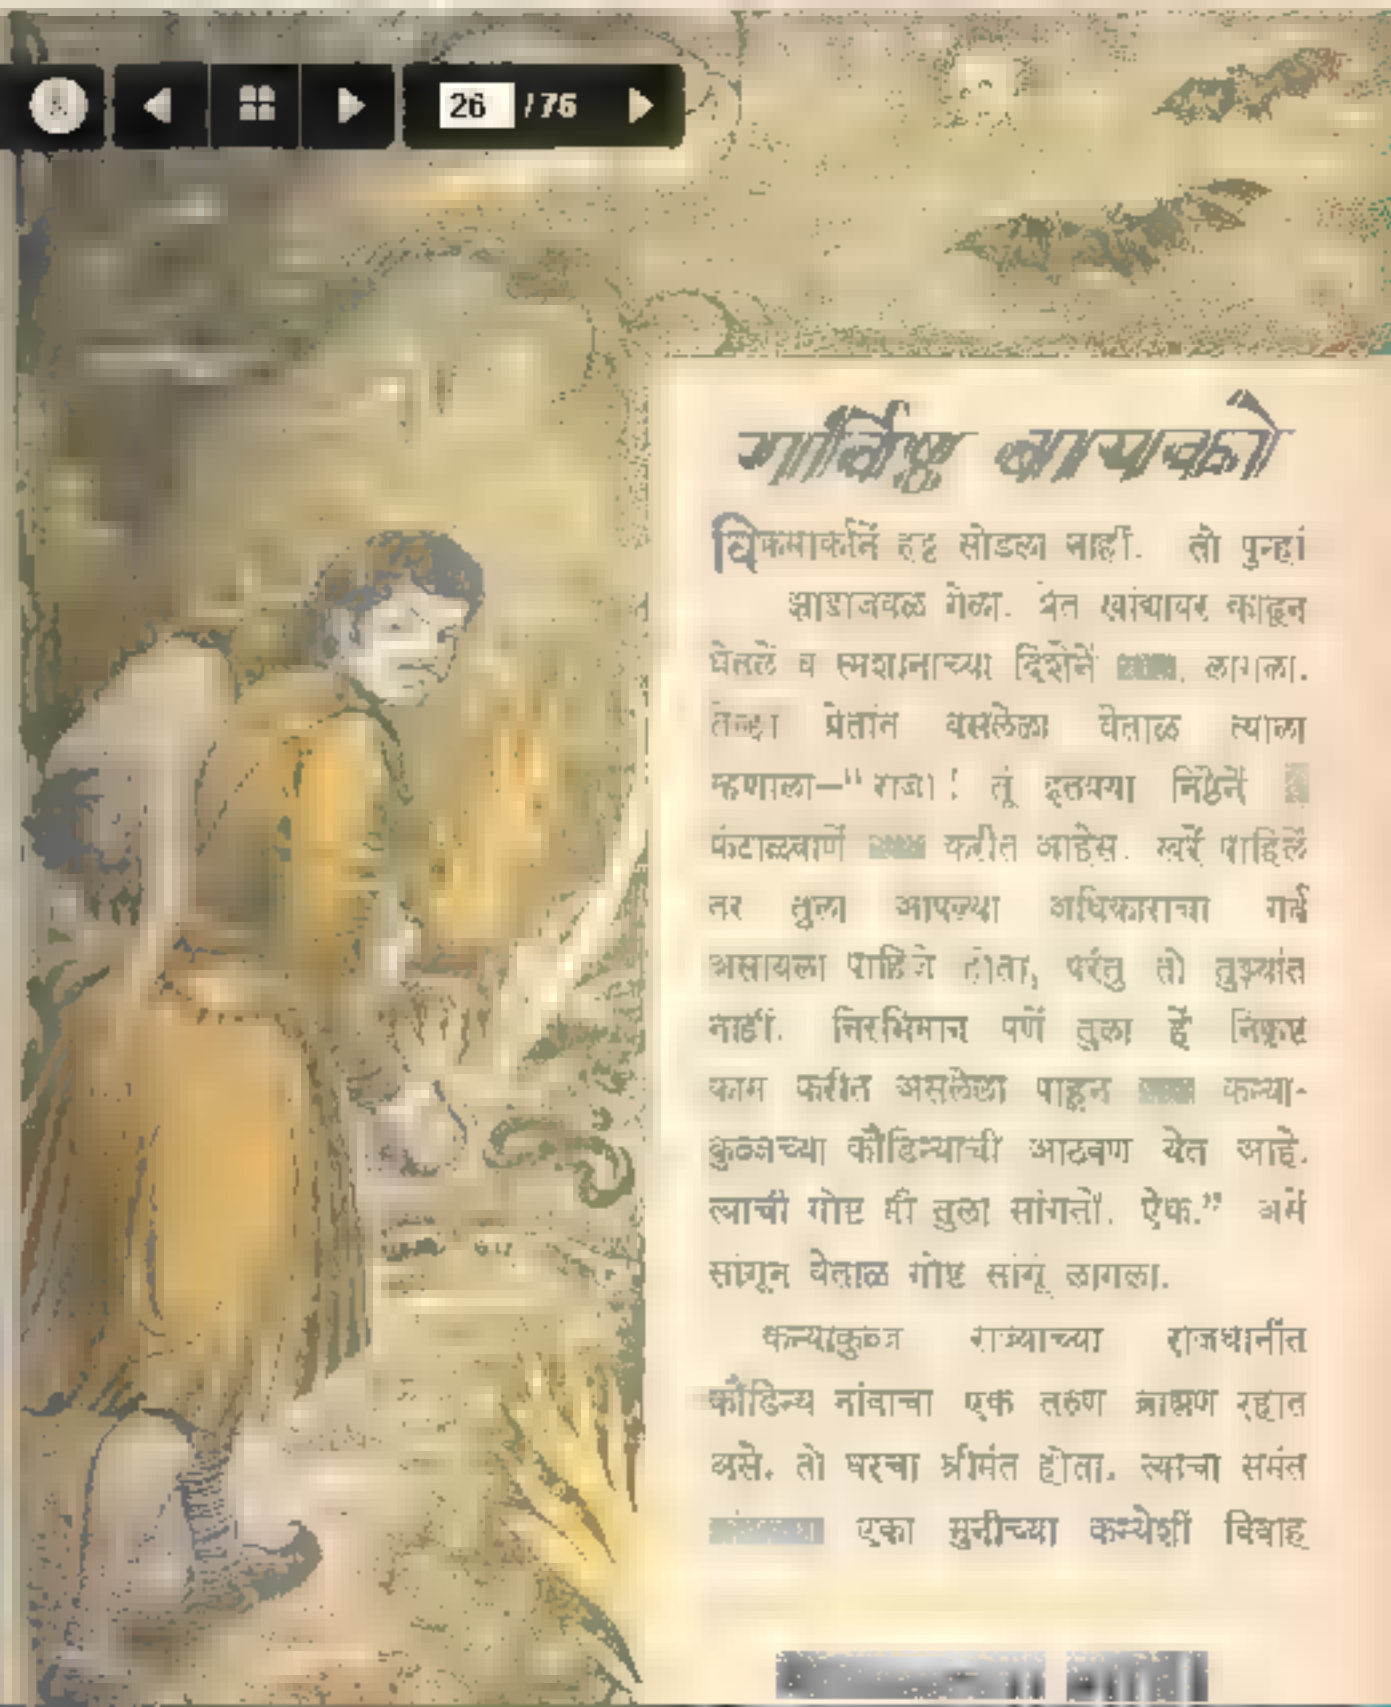 26 / 76
गर्विष्ठ बायको
विक्रमार्काने हट्ट सोडला नाहीं. तो पुन्हां
झाडाजवळ गेला. प्रेत खांद्यावर काढून
घेतलें व स्मशानाच्या दिशेनें लागला.
तेव्हा प्रेतांत वसलेला वेताळ त्याला
म्हणाला—“राजा! तूं इतक्या निष्ठेनें
कंटाळवाणें करीत आहेस. खरें पाहिलें
तर तुला आपल्या अधिकाराचा गर्व
असायला पाहिजे होता, परंतु तो तुझ्यांत
नाहीं. निरभिमान पणें तुला हें निकृष्ट
काम करीत असलेला पाहून कन्या-
कुब्जच्या कौडिन्याची आठवण येत आहे.
त्याची गोष्ट मी तुला सांगतों. ऐक.” असें
सांगून वेताळ गोष्ट सांगूं लागला.
कन्याकुब्ज राज्याच्या राजधानींत
कौडिन्य नांवाचा एक तरुण ब्राह्मण रहात
असे. तो घरचा श्रीमंत होता. त्याचा संमत
एका मुनीच्या कन्येशीं विवाह